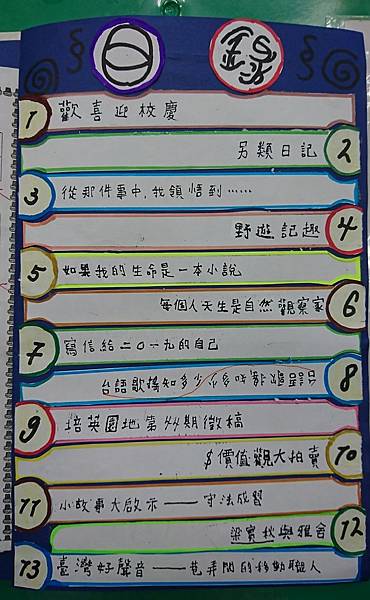 目錄
1 歡喜迎校慶
另類日記 2
3 從那件事中,我領悟到……
野遊記趣 4
5 如果我的生命是一本小說
每個人天生是自然觀察家 6
7 寫信給二○一九的自己
台語歌搖知多少 8
9 培英園地第44期徵稿
$價值觀大拍賣 10
11 小故事大啟示——守法成習
梁實秋與雅舍 12
13 臺灣好聲音——巷弄間的移動職人